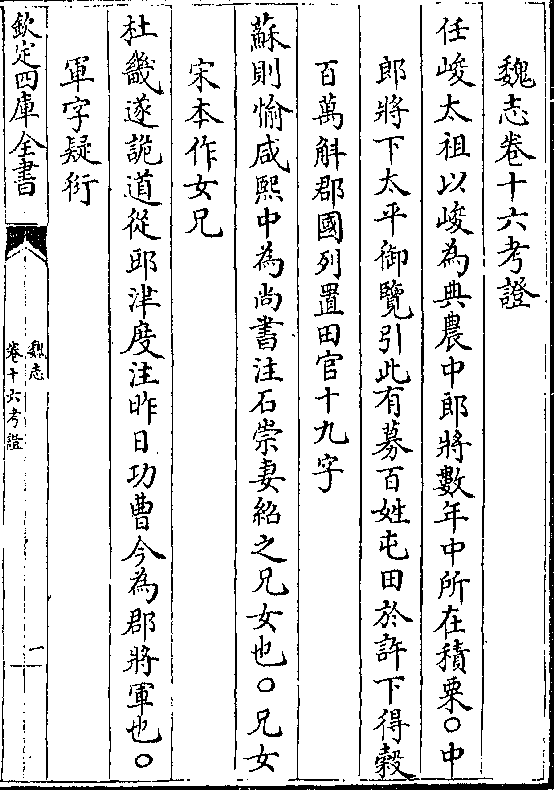 魏志卷十六考證
任峻太祖以峻為典農中郎將數年中所在積粟○中
郎將下太平御覽引此有募百姓屯田於許下得穀
百萬斛郡國列置田官十九字
蘇則愉咸熙中為尚書注石崇妻紹之兄女也○兄女
宋本作女兄
杜畿遂詭道從郖津度注昨日功曹今為郡將軍也○
軍字疑衍
欽定四庫全書
魏志
卷十六考證
一